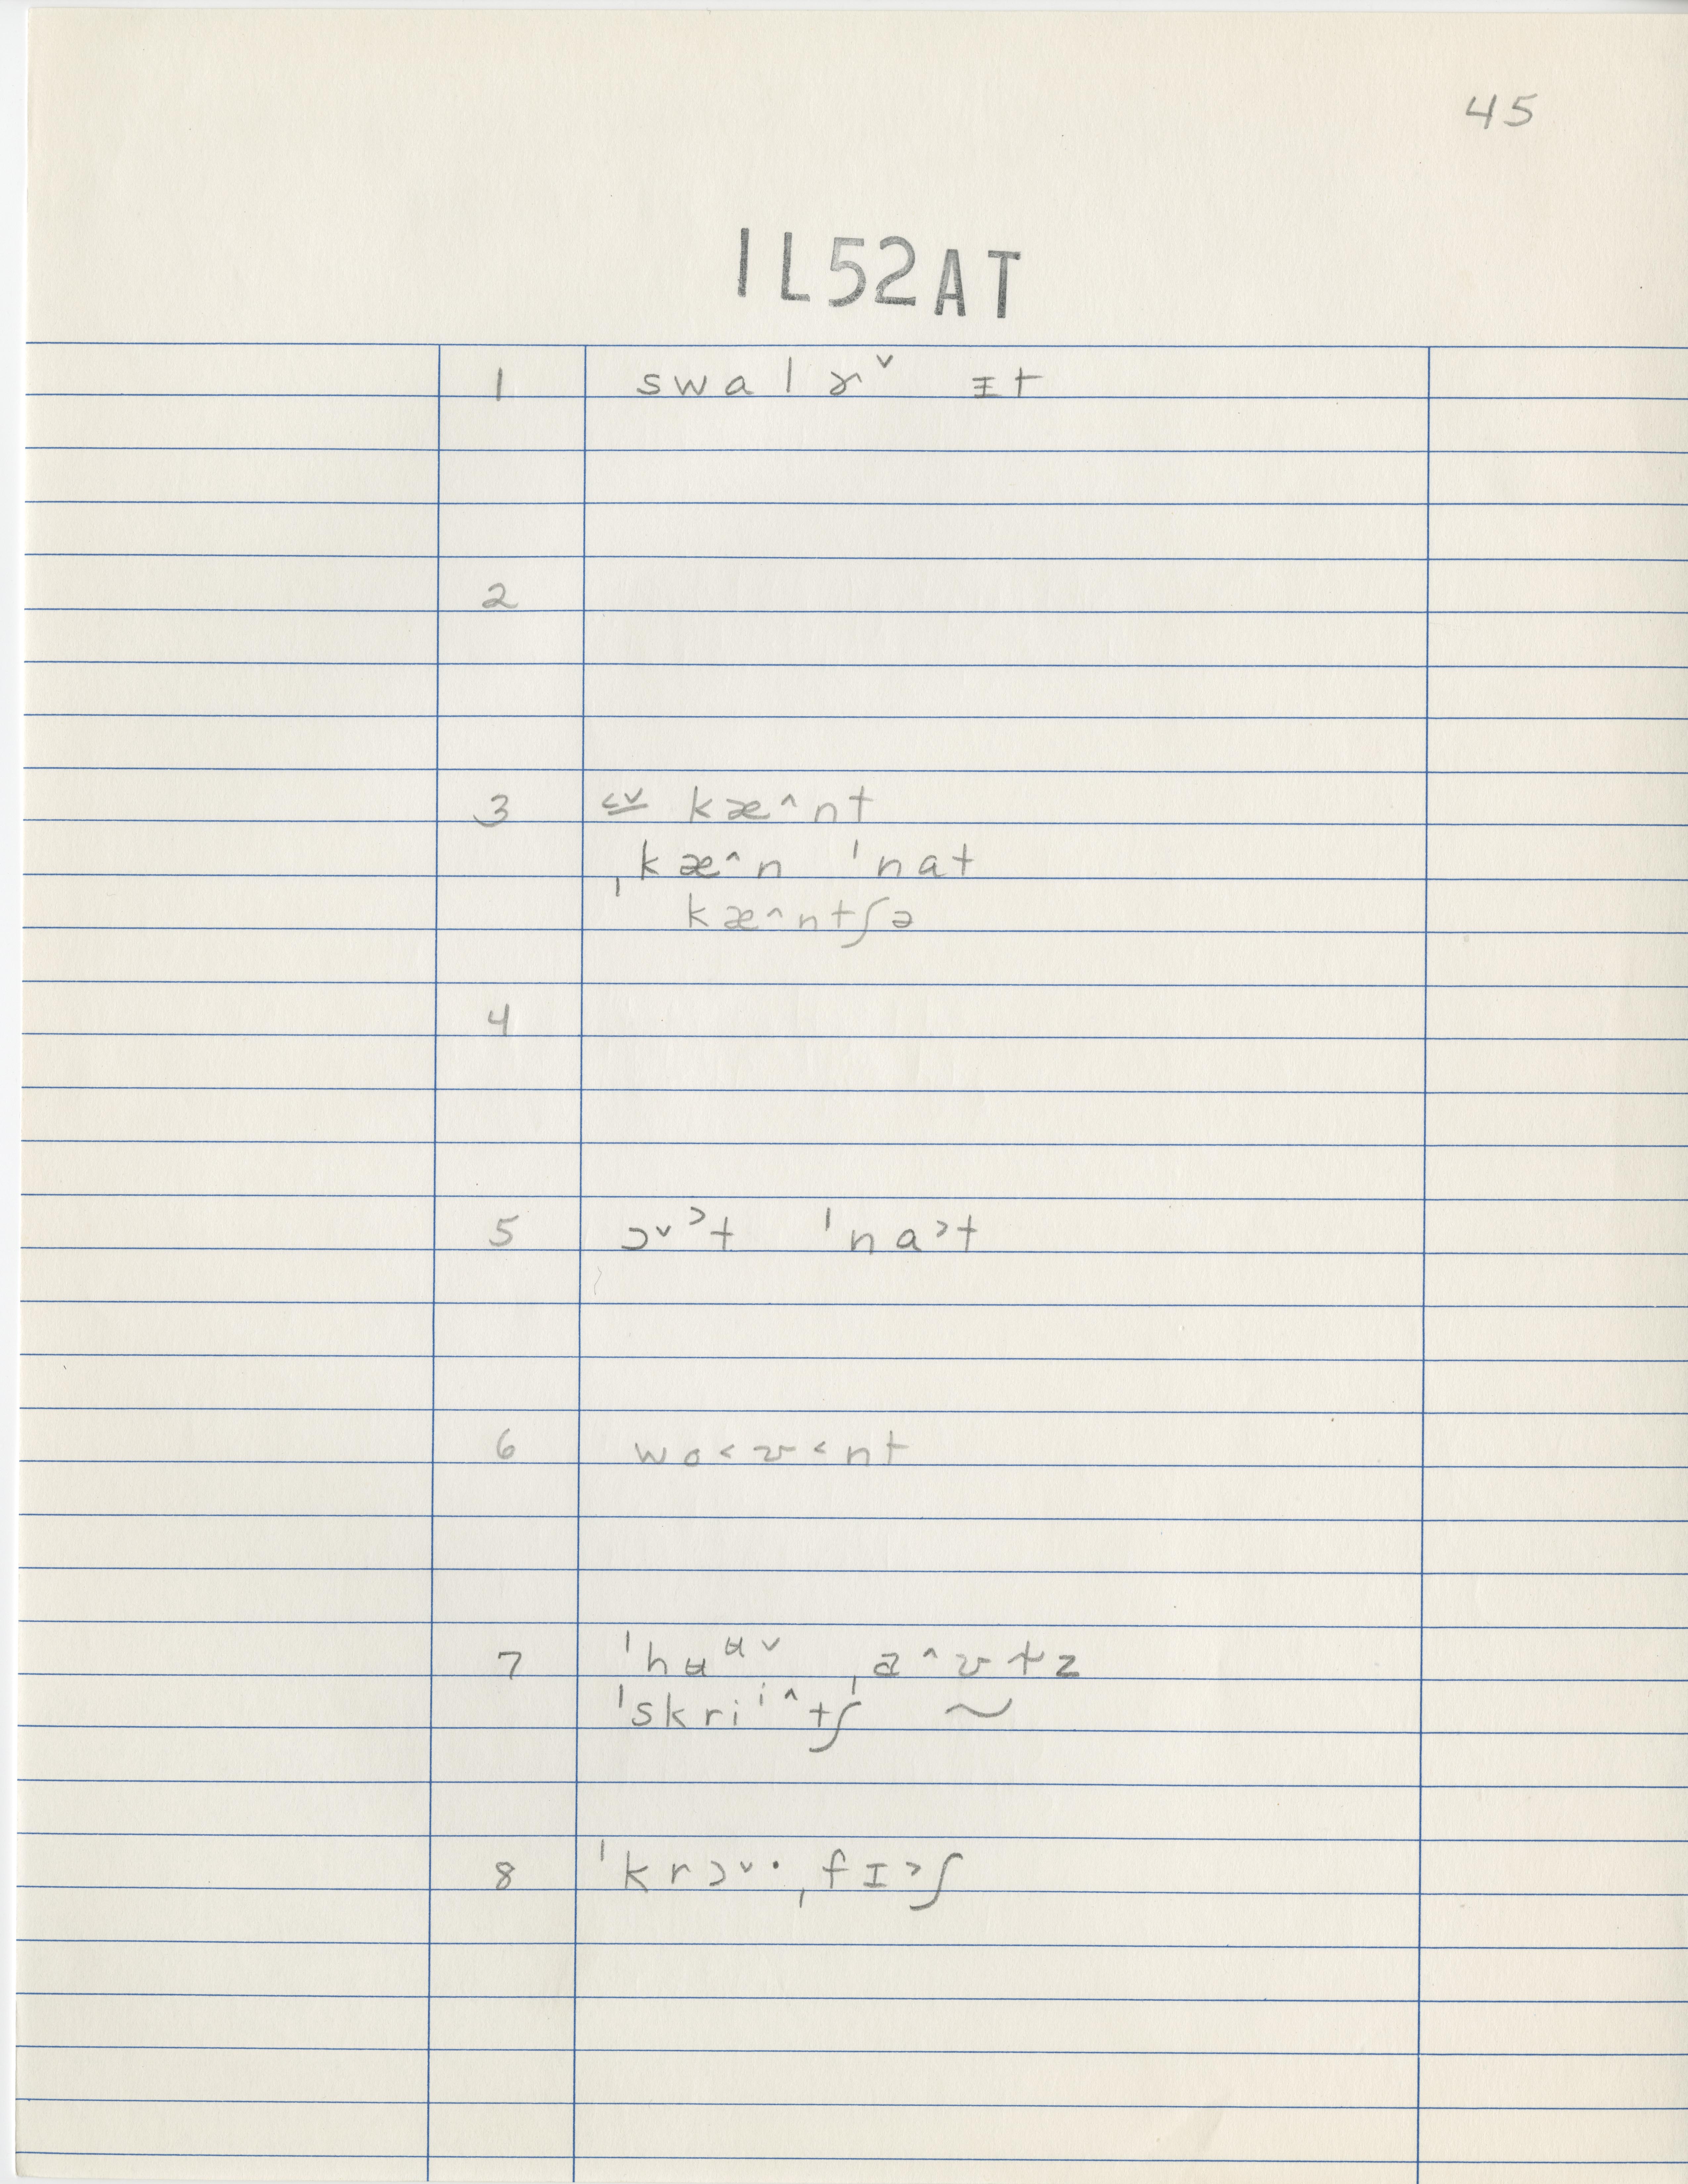 45
1L52AT
1 swalɤ˅ ɪ̵t
2
3 ˂˅ kæ˄nt
ˌkæ˄n ˈnat
kæ˄ntʃə
4
5 ɔ˅˃t ˈna˃t
6 wo˂ʊ˂nt
7 ˈhʉʉ˅ ˌa˄ʊtz
ˈskriⁱ˄tʃ ~
8 ˈkrɔ˅· ˌfɪ˃ʃ